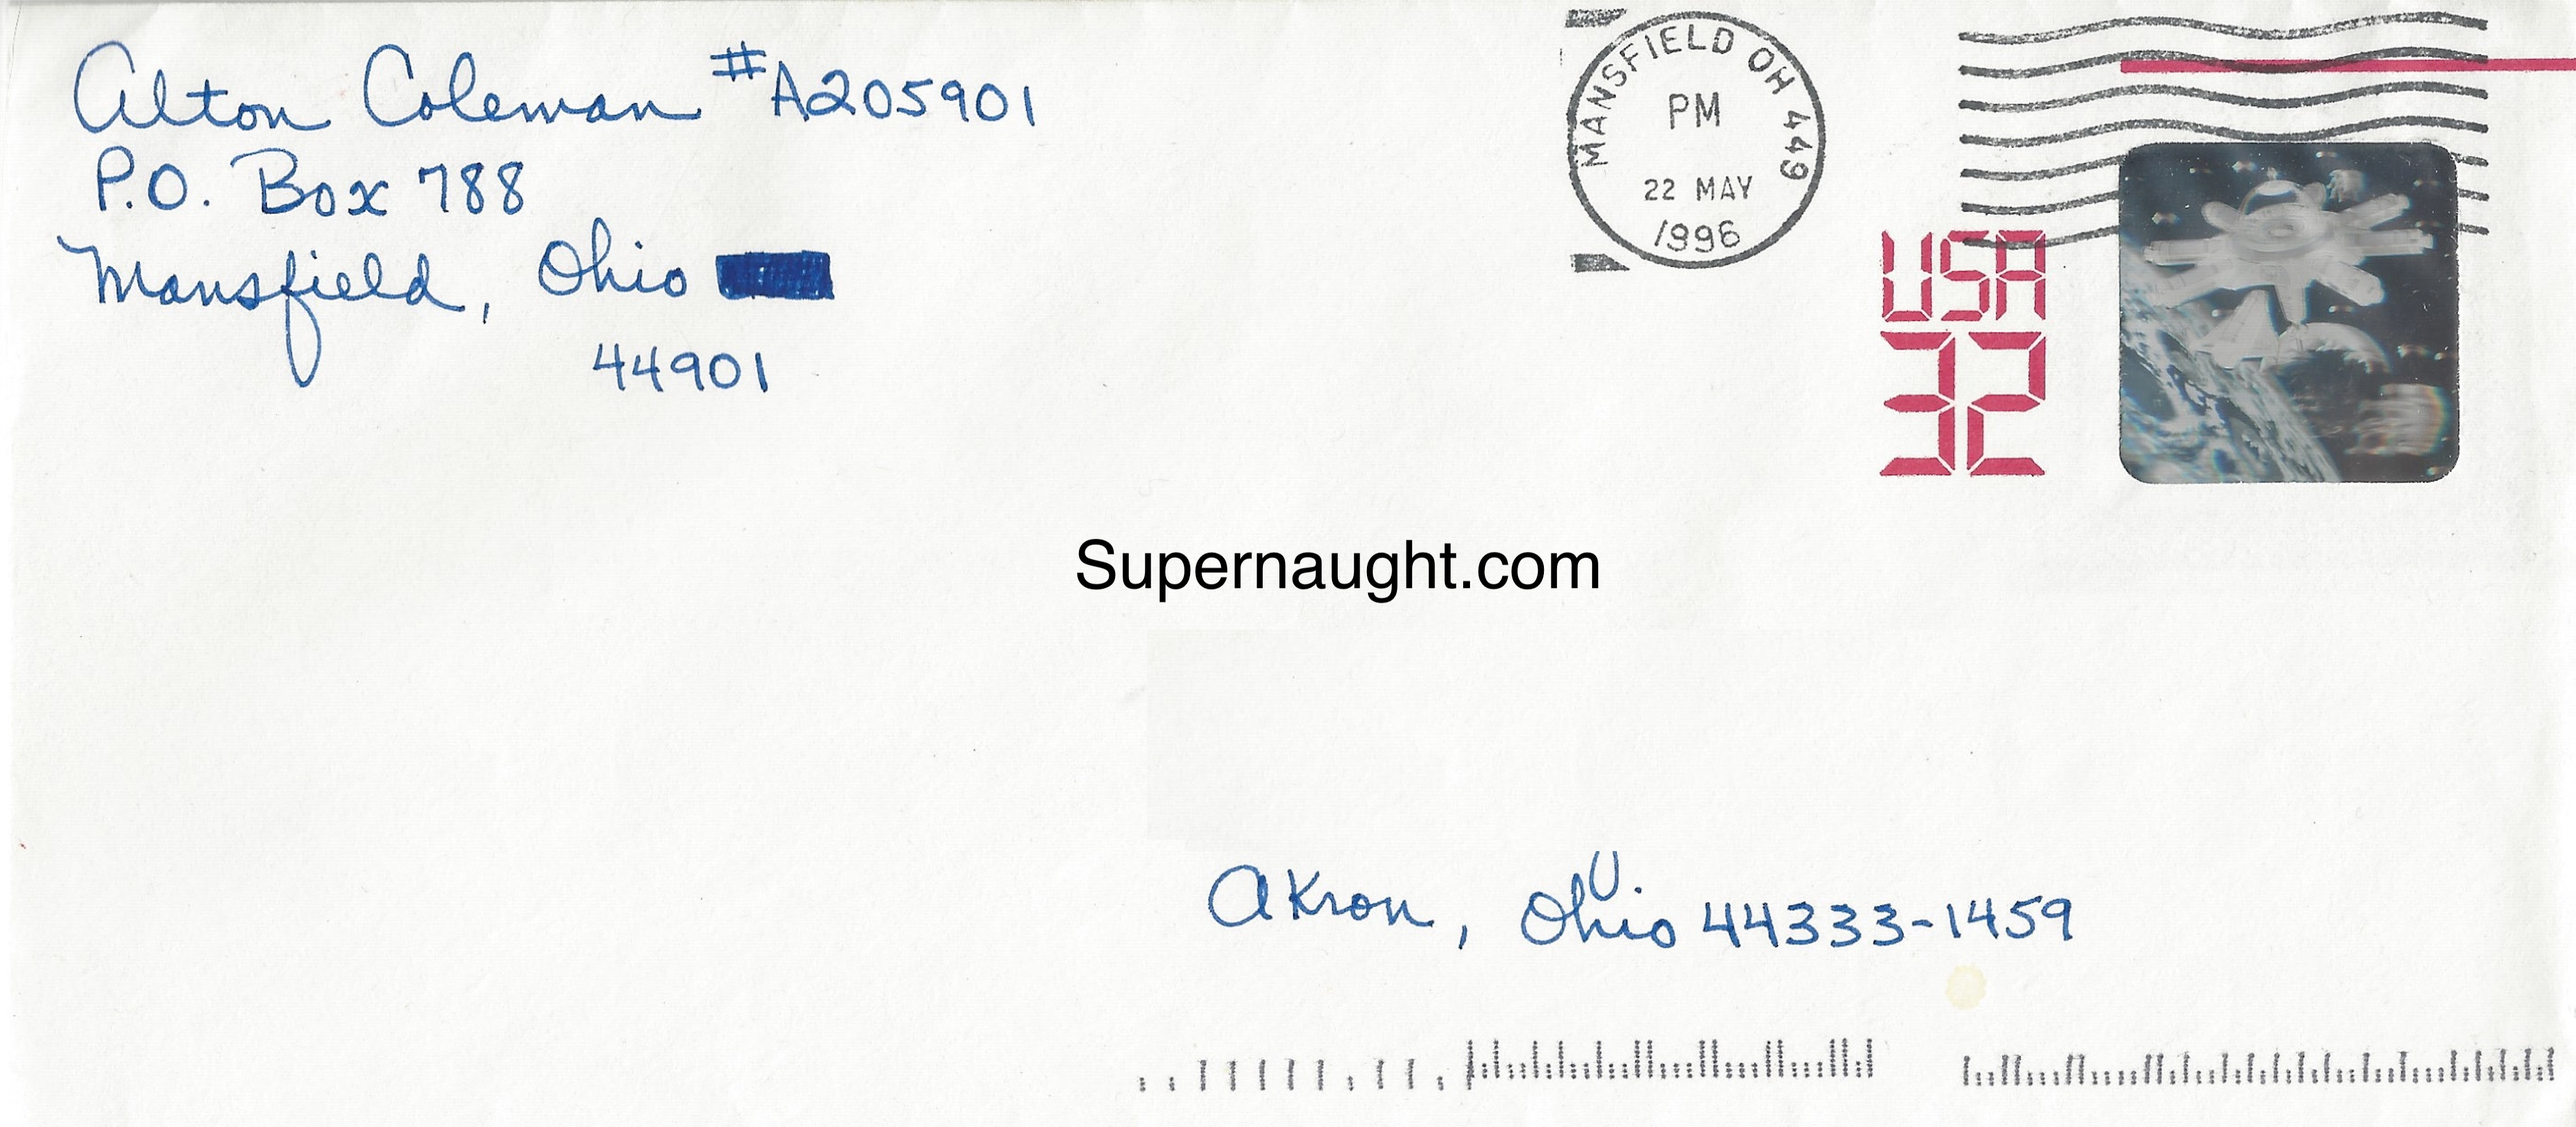 Alton Coleman #A205901
P.O. Box 788
Mansfield, Ohio
44901
MANSFIELD OH 449
PM
22 MAY
1996
USA
32
Supernaught.com
Akron, Ohio 44333-1459